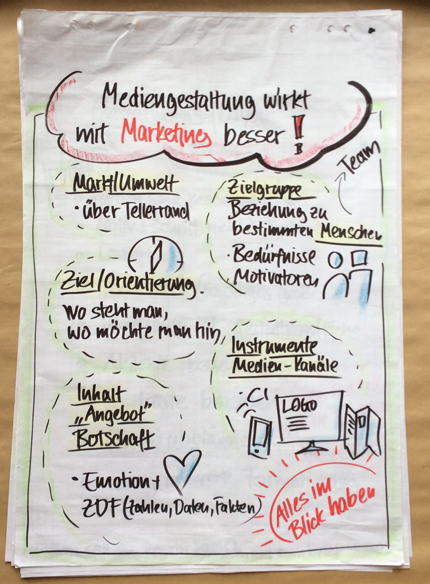 Mediengestaltung wirkt
mit Marketing besser !
Team
Markt/Umwelt
• über Tellerrand
Zielgruppe
Beziehung zu
bestimmten Menschen
• Bedürfnisse
Motivatoren
Ziel/Orientierung
wo steht man,
wo möchte man hin
Instrumente
Medien-Kanäle
• CI
LOGO
Inhalt
„Angebot"
Botschaft
• Emotion +
ZDF (Zahlen, Daten, Fakten)
Alles im
Blick haben